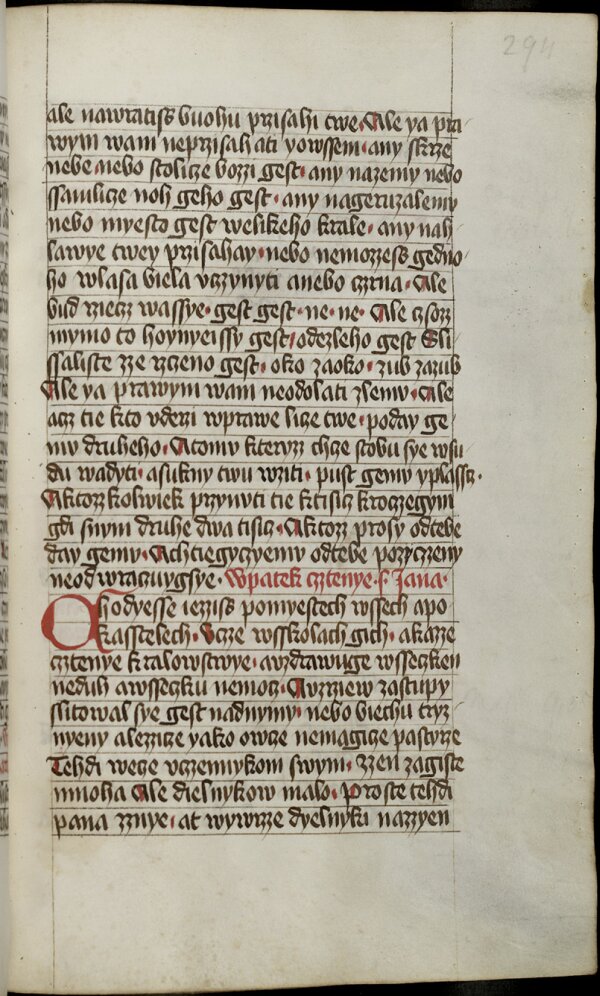 294
ale nawratiss buohu przisahi twe Ale ya pra
wym wam neprzisahati yowssem any skrze
nebe nebo stolicze bozzi gest any nazemy nebo
ssamlicze noh geho gest any nageruzalemy
nebo myesto gest welikeho krale any nah
lawye twey przisahay nebo nemozzess gedno
ho wlasa biela vczynyti anebo czrna Ale
bud rziecz wassye gest gest ne ne Ale czozz
mymo to hoynyeissy gest odezleho gest Sli
ssaliste zze rzczeno gest oko zaoko zub zazub
Ale ya prawym wam neodolati zlemu Ale
acz tie kto vderzi wprawe licze twe poday ge
mu druheho Atomu kteryz chcze stobu sye wsu
du wadyti asukny twu wziti pust gemu yplassz
Aktozzkolwiek przynuti tie ktisicz kroczegym
gdi snym druhe dwa tisicz Aktozz prosy odtebe
day gemu Achtiegyczyemu odtebe pozyczeny
neodwraczuygsye Wpatek cztenye s Jana
Chodyesse iezziss pomyestech wssech apo
kasstelech Vcze wsskolach gich akazze
cztenye kralowstwye auzdrawuge wsseczken
neduh awsseczku nemocz Auzrziew zastupy
slitowal sye gest nadnymy nebo biechu tryz
nyeny alezzicze yako owcze nemagicze pastyrze
Tehdi wecze vczennykom swym zzen zagiste
mnoha Ale dielnykow malo Proste tehdi
pana zznye at wywrzze dyelnyki nazzyen